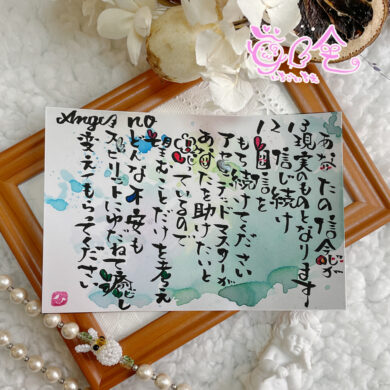 あなたの信念が
現実のものとなります
信じ続け
信念を
もち続けてください
アセンデッドマスターが
あなたを助けたいと
思っているので
望むことだけを考え
Angel no
どんな不安も
スピリットにゆだねて癒し
変えてもらってください